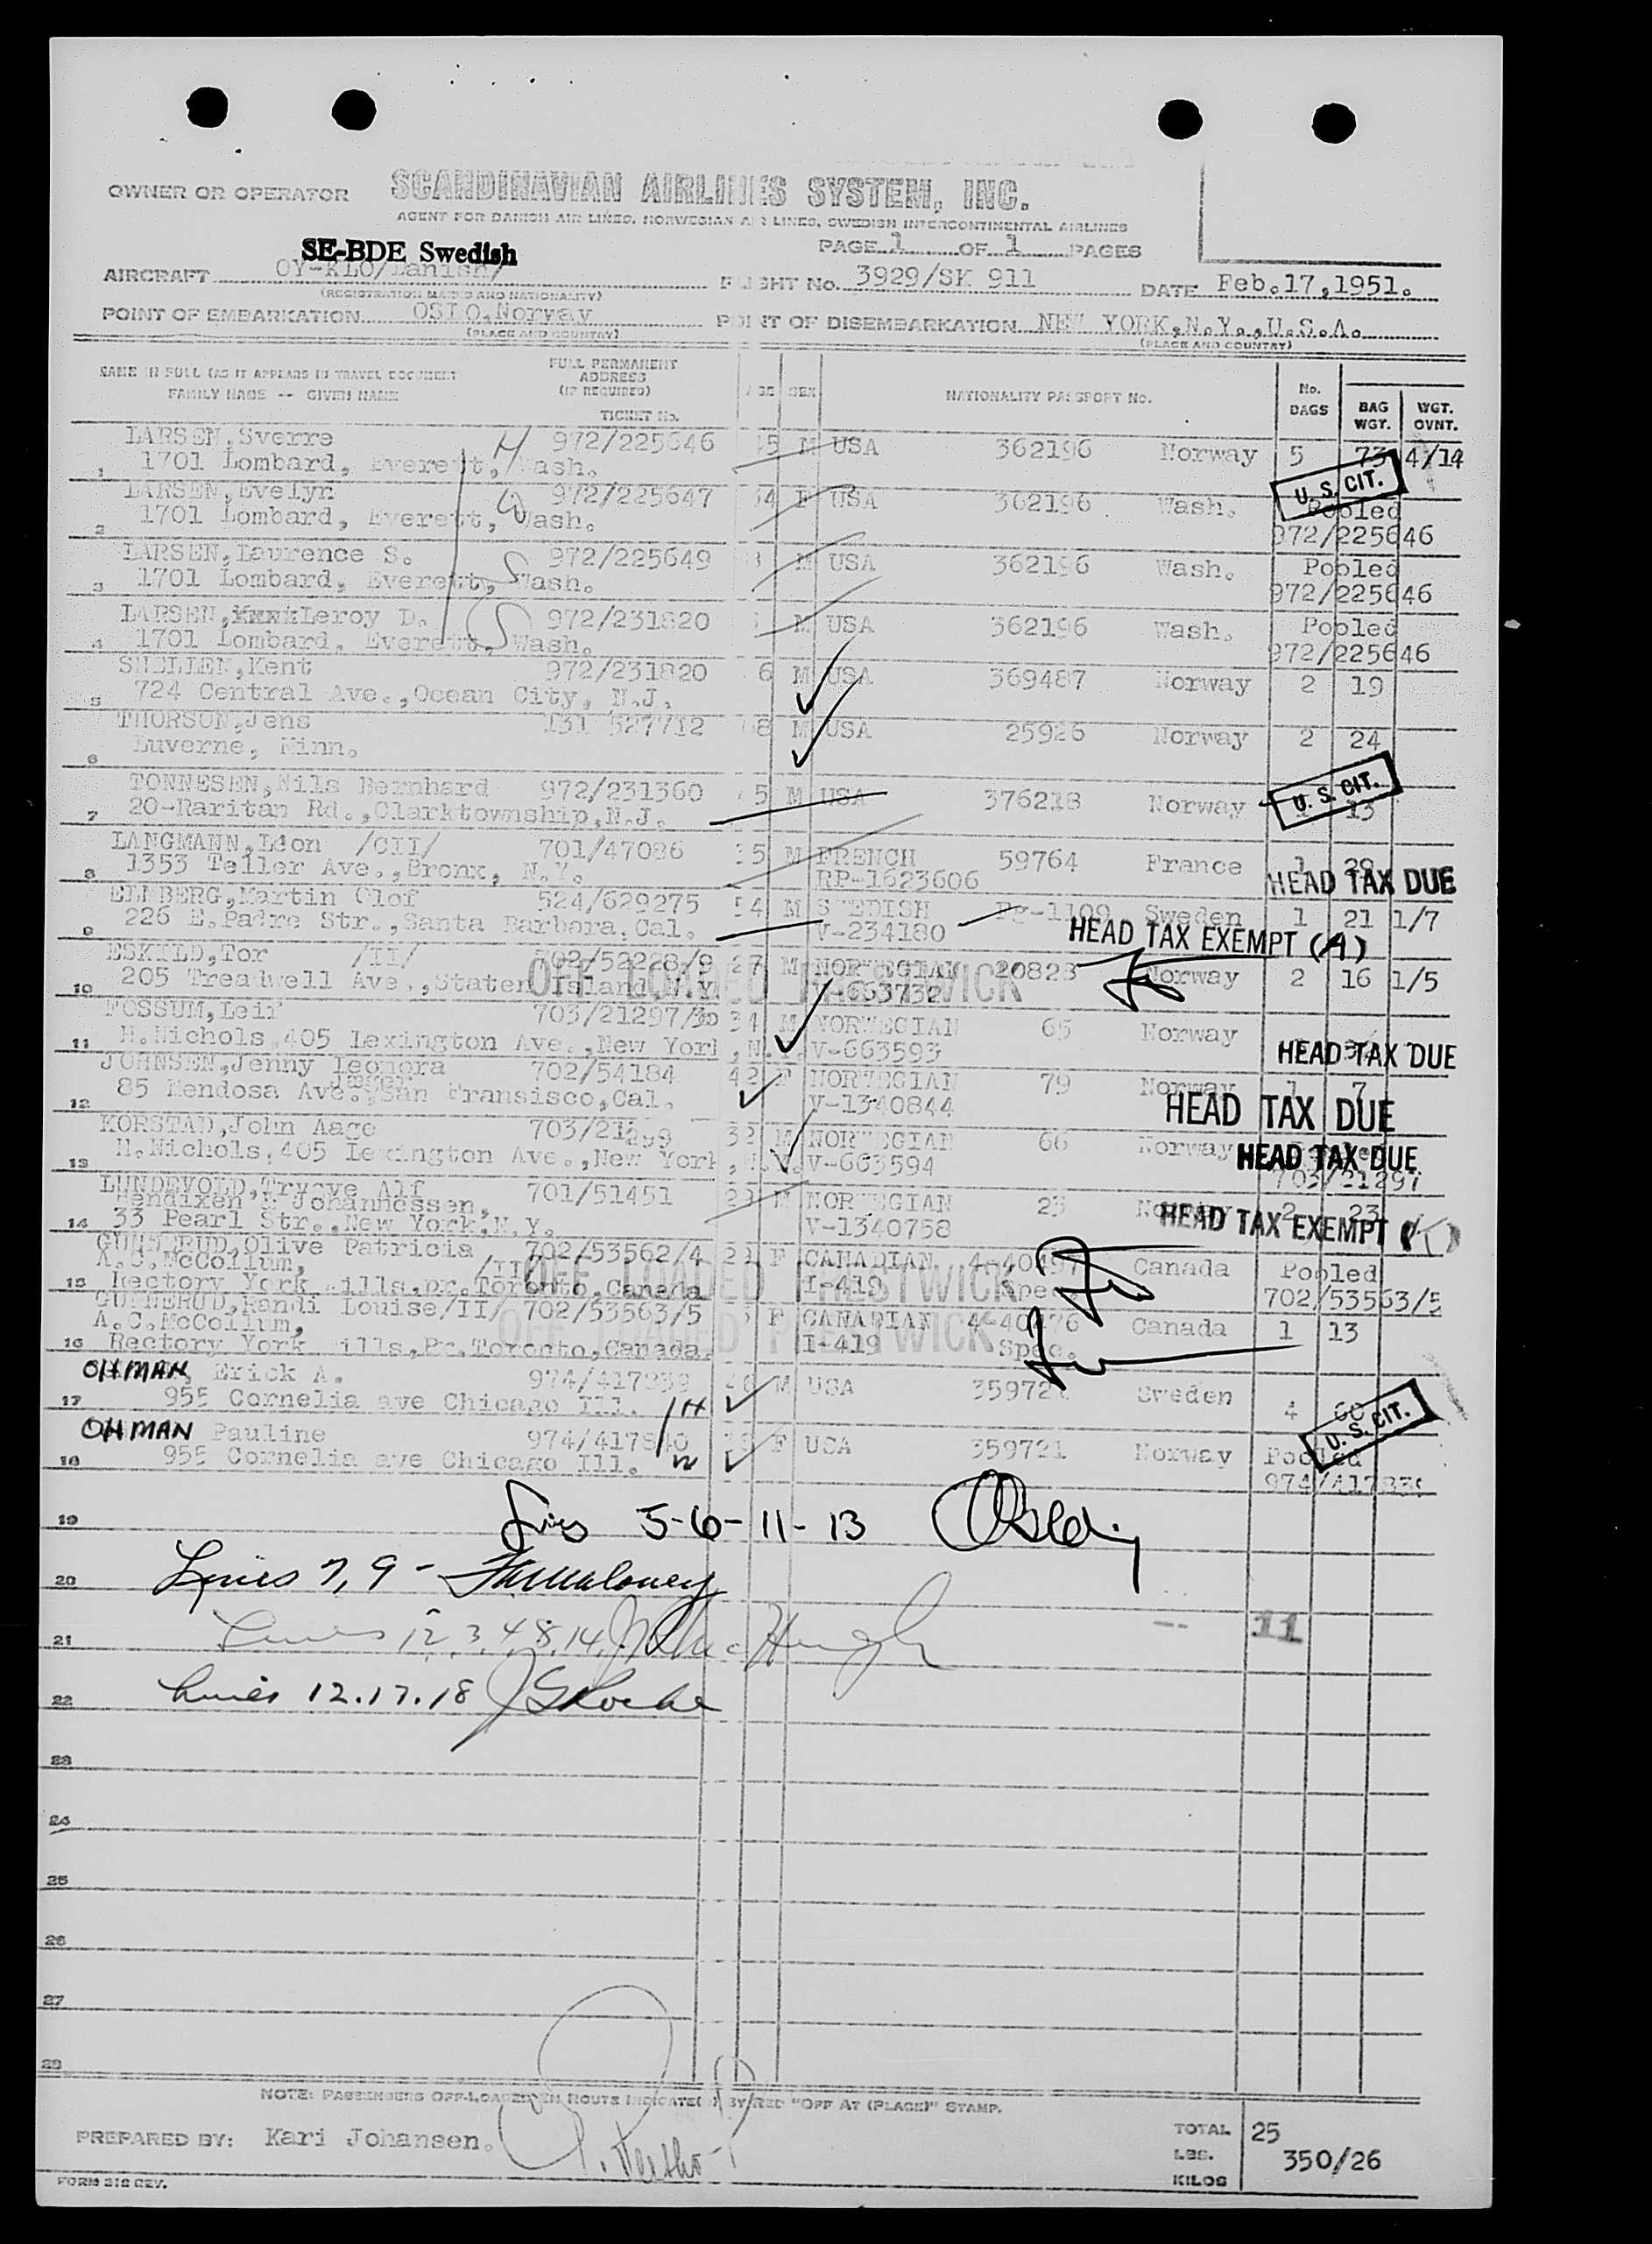 OWNER OR OPERATOR SCANDINAVIAN AIRLINES SYSTEM, INC.
AGENT FOR DANISH AIR LINES, NORWEGIAN AIR LINES, SWEDISH INTERCONTINENTAL AIRLINES
SE-BDE Swedish PAGE 1 OF 1 PAGES
AIRCRAFT OY-KLO/Danish/ FLIGHT No. 3929/SK 911 DATE Feb.17,1951.
(REGISTRATION MARKS AND NATIONALITY)
POINT OF EMBARKATION OSLO,Norway POINT OF DISEMBARKATION NEW YORK,N.Y.,U.S.A.
(PLACE AND COUNTRY) (PLACE AND COUNTRY)
NAME IN FULL (AS IT APPEARS IN TRAVEL DOCUMENT FULL PERMANENT ADDRESS (IF REQUIRED) AGE SEX NATIONALITY PASSPORT No. No. BAGS BAG WGT. WGT. OVNT.
FAMILY NAME -- GIVEN NAME TICKET No.
LARSEN,Sverre 972/225646 M USA 362196 Norway 5 73 4/14
1 1701 Lombard, Everett, Wash. H
U. S. CIT.
LARSEN,Evelyn 972/225647 F USA 362196 Wash. Pooled
2 1701 Lombard, Everett, Wash. W 972/225646
LARSEN,Laurence S. 972/225649 M USA 362196 Wash. Pooled
3 1701 Lombard, Everett, Wash. S 972/225646
LARSEN, Leroy D. 972/231820 M USA 362196 Wash. Pooled
4 1701 Lombard, Everett, Wash. S 972/225646
SHELLEN,Kent 972/231820 6 M USA 369487 Norway 2 19
5 724 Central Ave.,Ocean City, N.J.
THORSON,Jens 131 527712 68 M USA 25926 Norway 2 24
6 Luverne, Minn.
TONNESEN,Nils Bernhard 972/231360 5 M USA 376218 Norway 1 13
7 20-Raritan Rd.,Clarktownship,N.J. U. S. CIT.
LANGMANN,Leon /CII/ 701/47086 35 M FRENCH 59764 France 1 29
8 1353 Teller Ave.,Bronx, N.Y. RP-1623606 HEAD TAX DUE
ELMBERG,Martin Olof 524/629275 54 M SWEDISH Pg-1109 Sweden 1 21 1/7
9 226 E.Padre Str.,Santa Barbara,Cal. V-234180 HEAD TAX EXEMPT (A)
ESKILD,Tor /II/ 702/52228/9 27 M NORWEGIAN 20823 Norway 2 16 1/5
10 205 Treadwell Ave.,Staten Island N.Y. V-663732
OFF LOADED PRESTWICK
FOSSUM,Leif 703/21297/30 34 M NORWEGIAN 65 Norway
11 H.Nichols,405 Lexington Ave.,New York,N.Y. V-663593 HEAD TAX DUE
JOHNSEN,Jenny Leonora 702/54184 42 F NORWEGIAN 79 Norway 1 7
12 85 Mendosa Ave.,San Fransisco,Cal. V-1340844 HEAD TAX DUE
KORSTAD,John Aage 703/21299 32 M NORWEGIAN 66 Norway
13 H.Nichols,405 Lexington Ave.,New York,N.Y. V-663594 HEAD TAX DUE
703/21297
LUNDEVOLD,Trygve Alf 701/51451 29 M NORWEGIAN 23 Norway 2 23
Bendixen & Johannessen,
14 33 Pearl Str.,New York,N.Y. V-1340758 HEAD TAX EXEMPT
GUNNERUD,Olive Patricia 702/53562/4 29 F CANADIAN 4-40497 Canada Pooled
A.C.McCollum, /II/
15 Rectory York Mills,pr.Toronto,Canada I-419 Spec. 702/53563/5
OFF LOADED PRESTWICK
GUNNERUD,Randi Louise/II/ 702/53563/5 F CANADIAN 4-40476 Canada 1 13
A.C.McCollum,
16 Rectory York Mills,Pr.Toronto,Canada. I-419 Spec.
OFF LOADED PRESTWICK
OHMAN, Erick A. 974/417839 M USA 35972 Sweden 4 60
17 955 Cornelia ave Chicago Ill. H
U. S. CIT.
OHMAN Pauline 974/417840 F USA 359721 Norway Pooled
18 955 Cornelia ave Chicago Ill. W 974/417839
19 5-6-11-13
20 Lines 7, 9 - Maloney
21 Lines 1 2 3, 4, 8, 14, McHugh -- 11
22 Lines 12.17.18 Roche
23
24
25
26
27
28
NOTE: PASSENGERS OFF-LOADED EN ROUTE INDICATED BY RED "OFF AT (PLACE)" STAMP.
PREPARED BY: Kari Johansen.
TOTAL 25
LBS. 350/26
KILOS
FORM 318 REV.